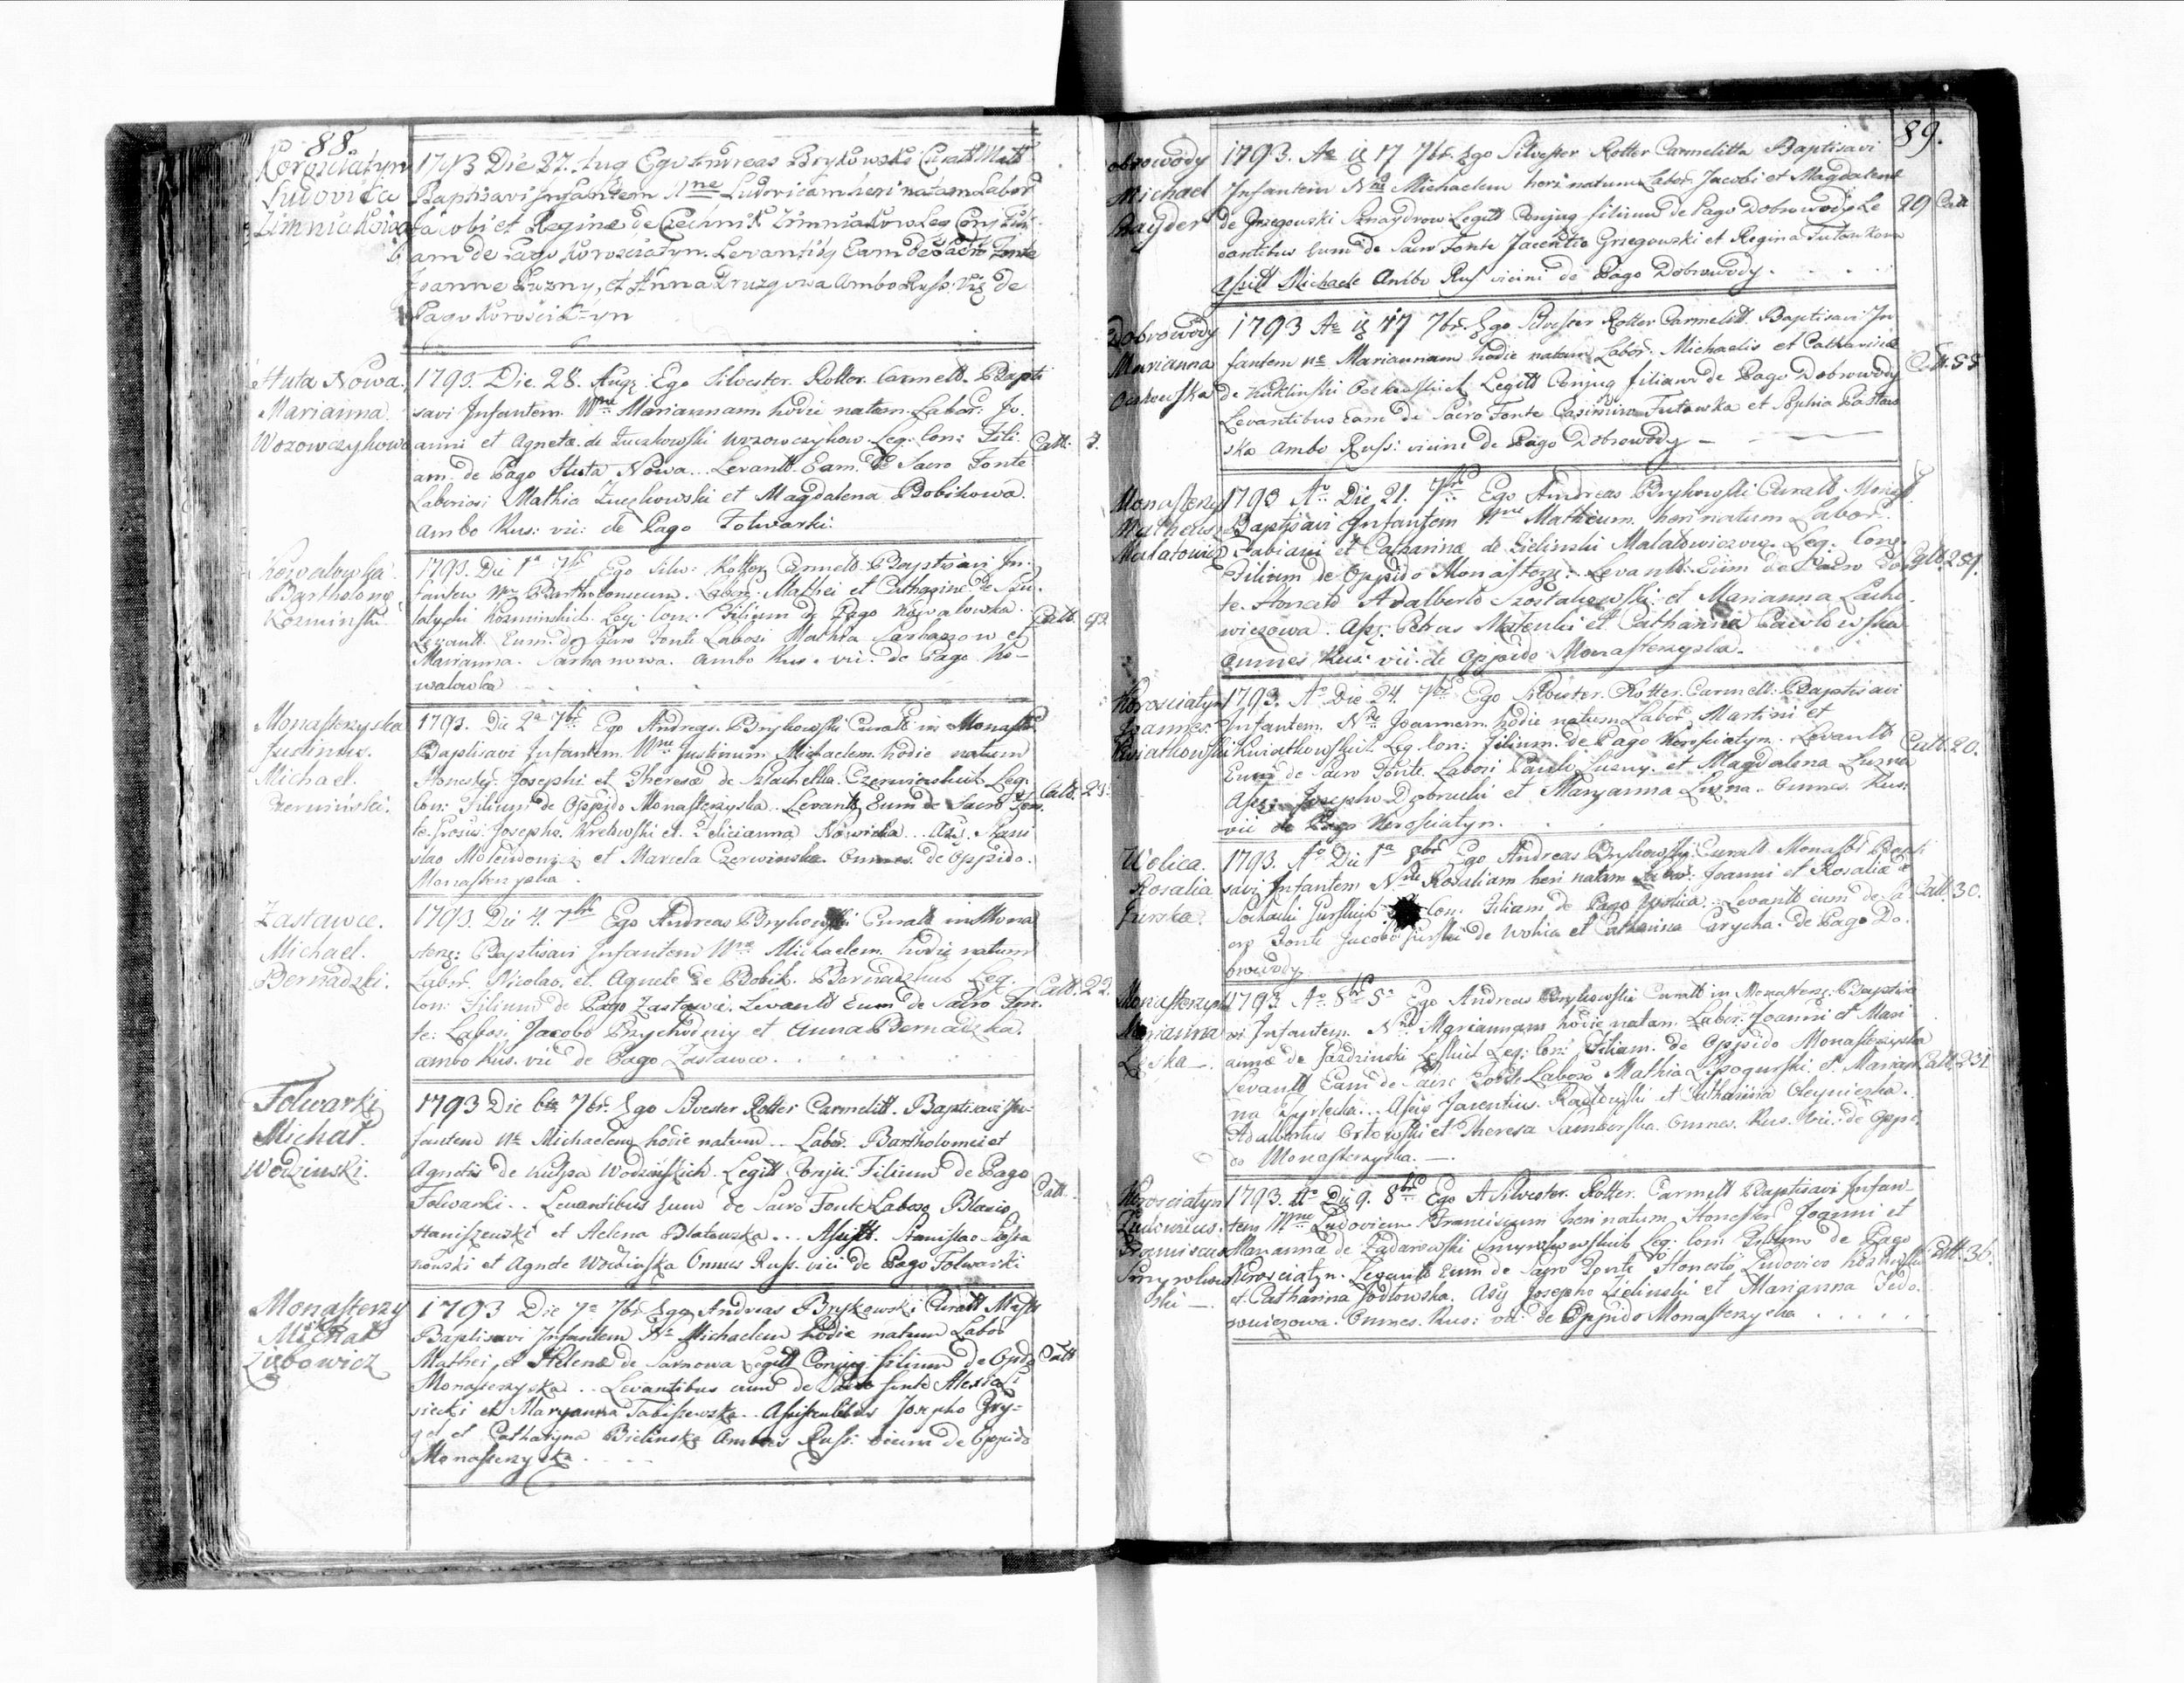 88.
Korościatyn
Ludovica
Zimniakowa
1793 Die 27. Aug Ego Andreas Brykowski Curatt Mostt
Baptisavi Infantem Nne Ludovicam heri natam Labor
Jacobi et Reginæ de Zimniakow Leg Conj Fili-
am de Pago Korosciatyn. Levantibq Eam de Sacro Fonte
Joanne Luzny, et Anna Druzgowa Ambo Russ. Vic de
Pago Korościatyn
Huta Nowa.
Marianna.
Wozowczykowa
1793. Die. 28. Augz. Ego Silvester. Rotter. Carmelt. Bapti
savi Infantem. Nne Mariannam. hodie natam. Labor: Jo.
anni et Agneta. de Zuczkowski Wozowczykow. Leg: Con: Fili.
am. de Pago Huta Nowa. Levantt. Eam. de Sacro Fonte
Laboriosi Mathia Zuczkowski et Magdalena Bobikowa.
Ambo Rus: vic: de Pago Folwarki.
Catt. 7.
Kowalowka.
Bartholome
Kozminski.
1793. Die 1a 7br Ego Silv: Rotter Carmelt. Baptisavi In-
fantem Nne Bartholomeum. Labor: Mathei et Catharine de
Kozminskich. Leg: Con: Filium de Pago Kowalowka.
Levantt. Eum. de Sacro Fonte Labosi Mathia et
Marianna. Ambo Rus. vic. de Pago Ko-
walowka
Catt. 92.
Monasterzyska
Justinus.
Michael.
Czerwiński.
1793. Die 2a 7br Ego Andreas Brykowski Curatt in Monastt
Baptisavi Infantem. Nne Justinum Michaelem. hodie natum
Honestz. Josephi et Theresæ de Szlachetka Czerwinskich Leg.
Con: Filium de Oppido Monasterzyska. Levantz Eum de Sacro Fon.
te. Josepho. Krekowski et. Felicianna Nowicka. As. Stani
slao et Marcela Czerwinska. Omnes. de Oppido.
Monasterzyska.
Catt. 23.
Zastawce.
Michael.
Bernadzki.
1793. Die 4. 7br Ego Andreas Brykowski Curatt in Mona
sterz: Baptisavi Infantem Nne Michaelem. hodie natum
Labor. Nicolao. et. Agnete de Bobik. Bernadzkich Leg.
Con: Filium de Pago Zastawce. Levantt Eum de Sacro Fon.
te: Labosi Jacobo Przychodniy et Anna Bernadzka.
ambo Rus. vic de Pago Zastawce.
Catt: 22.
Folwarki
Michał.
Wodzinski.
1793 Die 6ta 7br. Ego Silvester Rotter Carmelitt. Baptisavi In-
fantem Ne Michaelem hodie natum.. Labor. Bartholomei et
Agnetis de Kulpa Wodzinskich. Legitt Conju: Filium de Pago
Folwarki.. Levantibus Eum de Sacro Fonte Laboso Blasio
Staniszewski et Helena Blatowska... Assistt. Stanislao Szosta
nowski et Agnete Wodzinska Omnes Russ. vici de Pago Folwarki
Catt.
Monasterzy
Michał
Ziębowicz
1793 Die 7a 7br Ego Andreas Brykowski Curatt Mostt
Baptisavi Infantem Ne Michaelem hodie natum Labor
Mathei, et Helenæ de Sarnowa Legitt Conjug filium de Opido
Monasterzyska.. Levantibus eum de Sacro fonte Alexio
siecki et Maryanna Tabiszewska. Assistentibus Josepho Gry-
gel et Catharyna Bielinska Ambes Russ: vicini de Oppido
Monasterzyska
Catt
89.
obrowody
Michael
Sznayder
1793. Ao ig 17 7br. Ego Silvester Rotter Carmelitta Baptisavi
Infantem Nne Michaelem heri natum Labor. Jacobi et Magdalene
de Grzegowski Sznaydrow Legitt Conjug filium de Pago Dobrowody Le
vantibus Eum de Sacro Fonte Jacentio Grzegowski et Regina Futowkowa
Assist Michaele Ambo Rus vicini de Pago Dobrowody.
29 Catt
Dobrowody
Marianna
1793 Ao ig 17 7br. Ego Silvester Rotter Carmelitt. Baptisavi In
fantem Ne Mariannam hodie natam Labor. Michaelis et Catharinæ
de Kuklinski Legitt Conjug filiam de Pago Dobrowody
Levantibus Eam de Sacro Fonte Casimiro Futowka et Sophia
ska Ambo Russ: vicini de Pago Dobrowody
Catt. 58
Monasterz
Matheus
Malatowicz
1793 Ao. Die 21. 7br Ego Andreas Brykowski Curatt Monast
Baptisavi Infantem Nne Matheum. heri natum Labor.
Fabiani et Catharina de Zielinski Malatowiczow. Leg. Con:
Filium de Oppido Monasterz. Levantt. Eum de Sacro Fon
te. Honesto Adalberto Szostakowski et Marianna Lacho-
wiczowa. Ass. Petrus Matenki et Catharina Pawlowska
omnes Rus. vii. de Oppido Monasterzyska.
Catt. 259.
Korosciatyn
Joannes.
Kwiatkowski
1793. Ao Die 24. 7br Ego Silvester. Rotter. Carmelt: Baptisavi
Infantem. Nne Joannem. hodie natum Labor. Martini et
Kwiatkowskich Leg Con: Filium. de Pago Korosciatyn. Levantt
Eum de Sacro Fonte. Labori Pawlo Luzny. et Magdalena Luzna
Ass: Josepho Dobrucki et Maryanna Luzna. Omnes. Rus:
vii de Pago Korosciatyn.
Catt. 20.
Wolica.
Rosalia
Gurska.
1793. Ao Die 1a 8br Ego Andreas Brykowski Curatt Monastt Bapti
savi Infantem Nne Rosaliam heri natam Labor. Joanni et Rosaliæ de
Gurskich Con. Filiam de Pago Wolica. Levantt eum de Sa
cro Fonte Jacobo Gurski de Wolica et Catharina Carycha. de Pago Do.
browody
Catt. 30.
Monasterzyska
Marianna
1793. Ao 8br 5a Ego Andreas Brykowski Curatt in Monasterz: Baptisa
vi Infantem. Nne Mariannam hodie natam Labor. Joanni et Mari
annæ de Leg: Con: Filiam. de Oppido Monasterzyska
Levantt Eam de Sacro Fonte Laboso Mathia Lisogurski. et Marian
na Assis Jacentius. et Catharina Oleynicka.
Adalbertus Ortowski et Theresa Samborska. Omnes. Rus. Vic. de Oppi.
do Monasterzyska.
Catt. 231
Korosciatyn
Ludowicus.
Franciscus
Smyrohow
ski
1793. Ao Die 9. 8br Ego Silvester. Rotter. Carmelt Baptisavi Infan-
tem Nne Ludovicum Franciscum heri natum. Honestor Joanni et
Mariannæ de Zadarowski Leg: Con: Filium de Pago
Korosciatyn. Levantt Eum de Sacro Fonte Honesto Ludovico
et Catharina Jodlowska. Ass Josepho Zielinski et Marianna Fedo.
wiczowa. Omnes. Rus: vii: de Oppido Monasterzyska
Catt. 36.